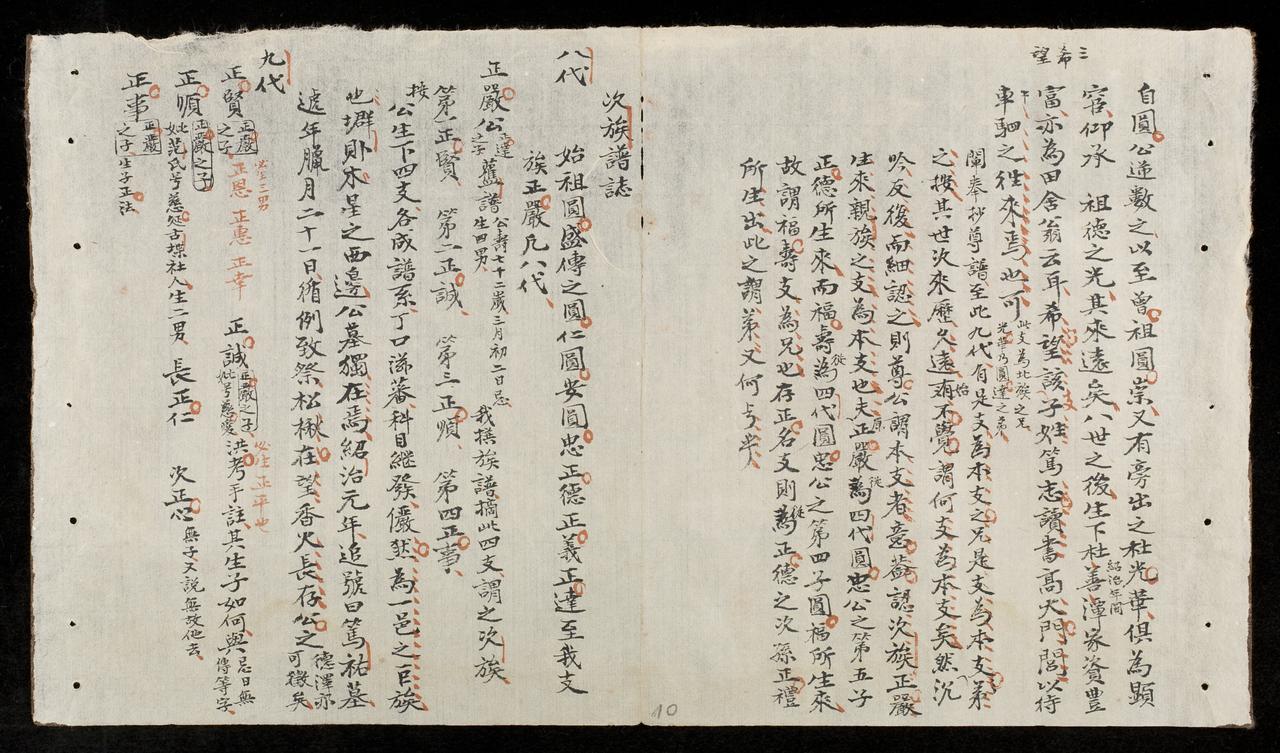 三希望
自圓公遞數之以至曾祖圓崇又有旁出之杜光華俱為顯
宦仰承 祖德之光其來遠矣八世之後生下杜善渾家資豐
紹治年間
富亦為田舍翁云耳希望該子姓篤志讀書高大門閭以待
車駟之往來焉也可
此支為北族之兄
光華乃圓達之弟
閒奉抄尊譜至此九代有是支為本支之兄是支為本支弟
之搜其世次來歷久遠始不覺謂何支為本支矣然沉
吟反後而細認之則尊公謂本支者意蘇認次族正嚴
生來親族之支為本支也夫正嚴原從四代圓忠公之第五子
正德所生來而福壽從四代圓忠公之第四子圓福所生來
故謂福壽支為兄也存正名支則從正德之次孫正禮
所生出此之謂弟又何亥半
次族譜誌
始祖圓盛傳之圓仁圓安圓忠正德正義正達至我支
族正嚴凡八代
八代
正嚴公正達之子 舊譜公壽七十二歲三月初二日忌生四男 我撰族譜摘此四支謂之次族
第一正賢 第二正誠 第三正順 第四正事
按公生下四支各成譜系丁口添蕃科目繼發儼然為一邑之巨族
也壙則木星之西邊公墓獨在焉紹治元年追號曰篤祐墓
遞年臘月二十一日循例致祭松楸在望香火長存公之德澤亦可徵矣
九代
正賢正嚴之子 必生三男 正恩 正惠 正幸 正誠正嚴之子妣号慈愛 必生正平也 洪考手註其生子如何與忌日無傳等字
正順正嚴之子妣范氏号慈 古堞社人生二男 長正仁 次正心無子又說無故他去
正事正嚴之子生子正法
10